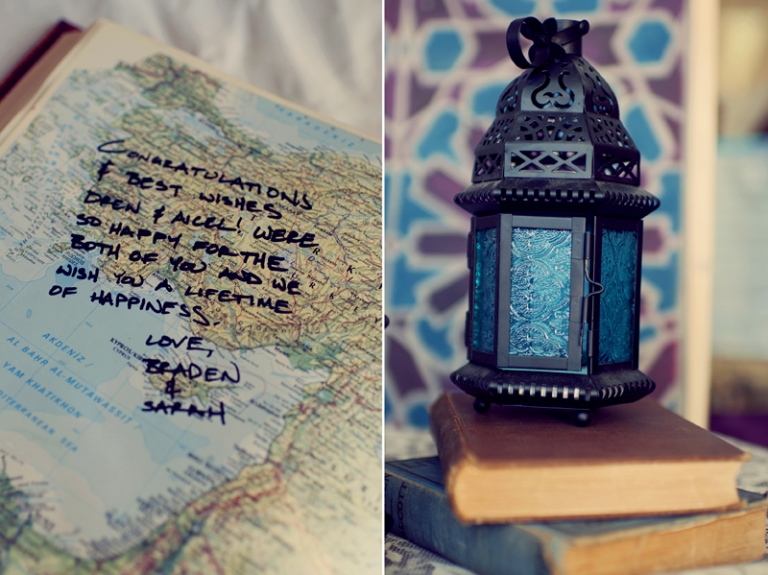 CONGRATULATIONS
& BEST WISHES
DREN & AICEL! WE'RE
SO HAPPY FOR THE
BOTH OF YOU AND WE
WISH YOU A LIFETIME
OF HAPPINESS.
LOVE,
BRADEN
&
SARAH
AKDENIZ /
AL BAHR AL-MUTAWASSIT
YAM KHATIKHON
MEDITERRANEAN SEA